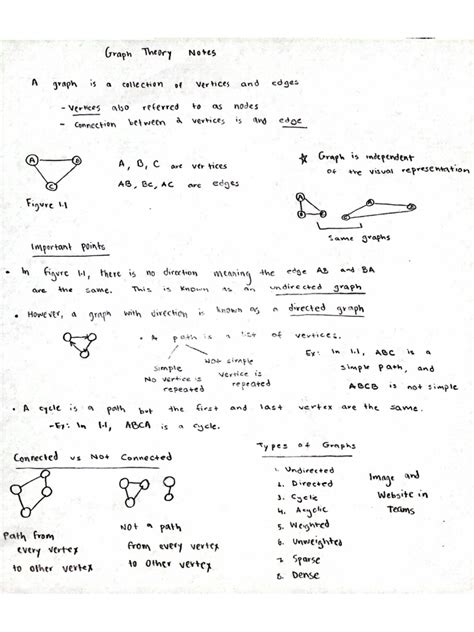 Graph Theory Notes
A graph is a collection of vertices and edges
- Vertices also referred to as nodes
- Connection between 2 vertices is and edge
A B C
Figure 1.1
A, B, C are vertices
AB, BC, AC are edges
☆ Graph is independent
of the visual representation
same graphs
Important points
• In figure 1.1, there is no direction meaning the edge AB and BA
are the same. This is known as an undirected graph
• However, a graph with direction is known as a directed graph
• A path is a list of vertices.
simple
No vertice is
repeated
Not simple
vertice is
repeated
Ex: In 1.1, ABC is a
simple path, and
ABCB is not simple
• A cycle is a path but the first and last vertex are the same.
-Ex: In 1.1, ABCA is a cycle.
Connected vs Not Connected
Path from
every vertex
to other vertex
Not a path
from every vertex
to other vertex
Types of Graphs
1. Undirected
2. Directed
3. Cyclic
4. Acyclic
5. Weighted
6. Unweighted
7. Sparse
8. Dense
Image and
Website in
Teams